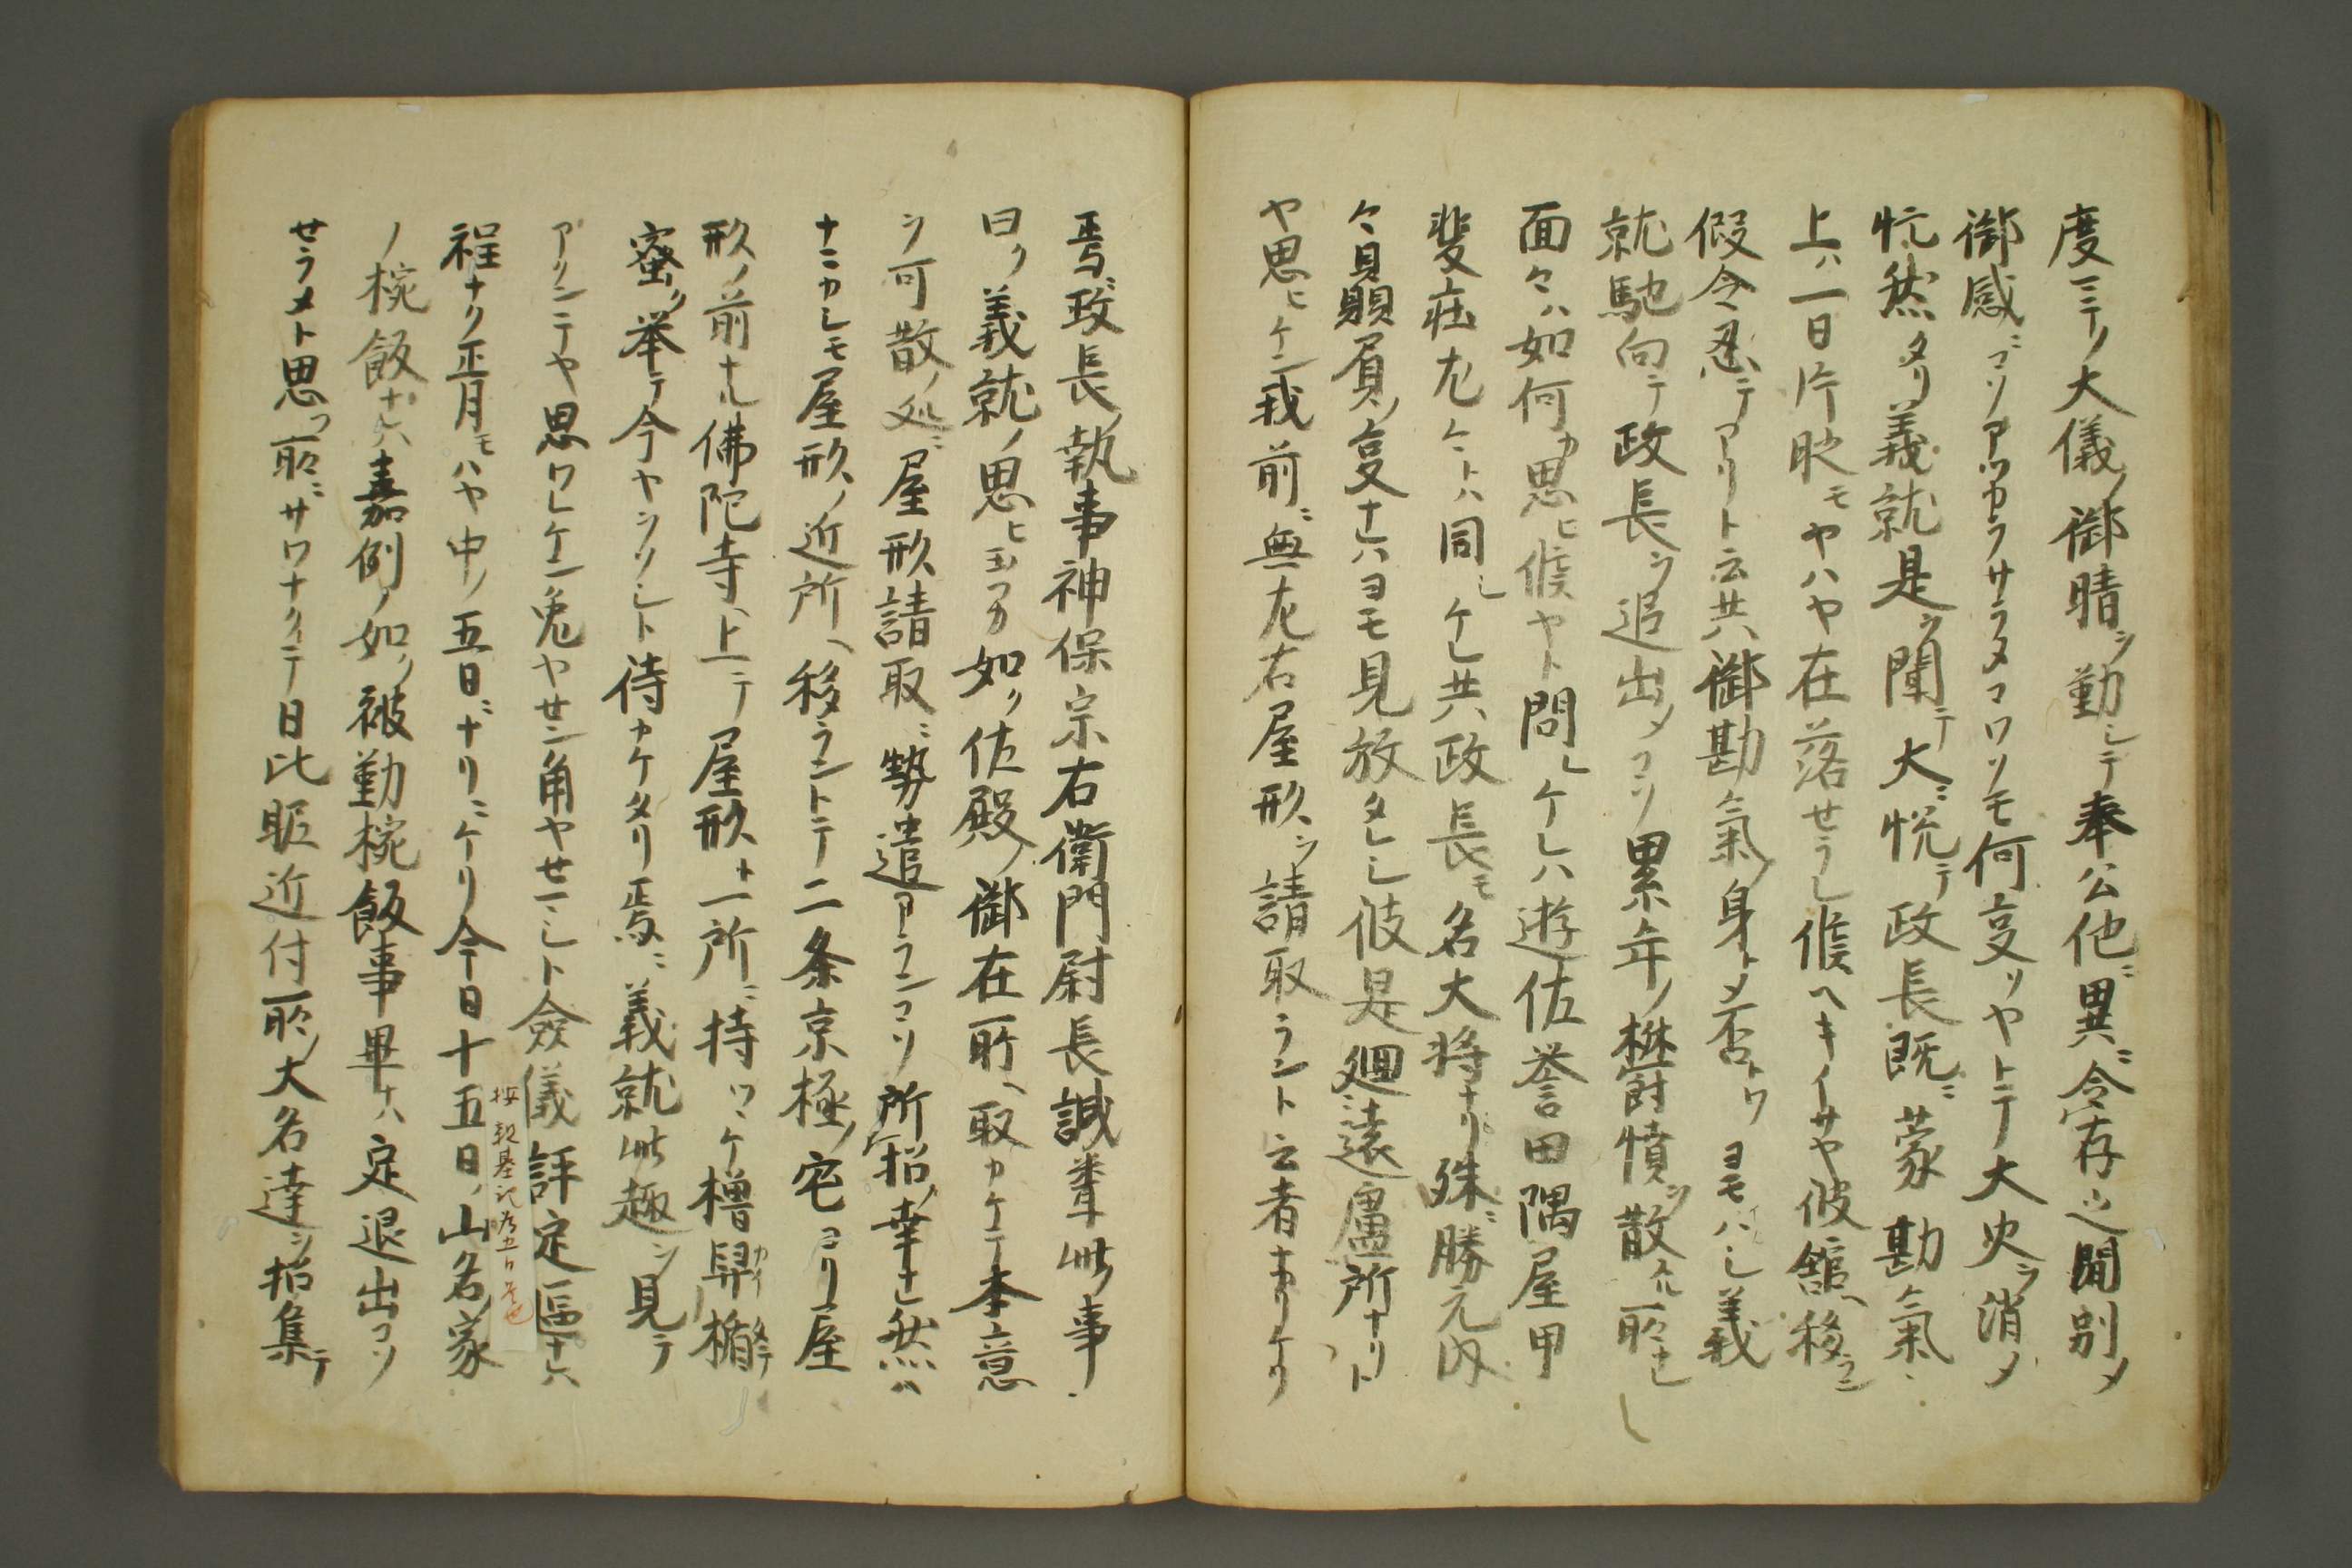 度ニテノ大儀ノ御晴ヲ勤シテ奉公他ニ異ニ令存之間別メ
御感ニコソアツカラサラメコワソモ何夏ソヤトテ大火ヲ消メ
忙然タリ義就是ヲ聞テ大ニ悦テ政長既ニ蒙勘氣
上ハ一日片時モヤハヤ在落セラレ候ヘキイサヤ彼舘ヘ移ラン
假令忍テアリト云共御勘氣ノ身トメ否トワヨモイハレシ義
就馳向テ政長ヲ追出メコソ累年ノ欝憤ヲ散スル所ナレ
面々ハ如何カ思ヒ候ヤト問レケレハ遊佐誉田隅屋甲
斐庄尤ケニトハ同レケレ共政長モ名大将ナリ殊ニ勝元内
々貝贔屓ノ夏ナレハヨモ見放タレシ彼是廻遠慮所ナリト
ヤ思ヒケン我前ニ無左右屋形ヲ請取ラント云者ナカリケリ
焉ニ政長ノ執事神保宗右衛門尉長誠聟此ノ事
曰ク義就ノ思ヒ玉フカ如ク佐殿ノ御在所ヘ取カケテ本意
ヲ可散ノ処ニ屋形請取ニ勢遣アランコソ所招ノ幸ナレ然ハ
ナニカシモ屋形ノ近所ヘ移ラントテ二条京極ノ宅ヨリ屋
形ノ前ナル佛陀寺ヘ上テ屋形ト一所ニ持ツヽケ櫓舁楯
密ク挙テ今ヤソリシト待カケタリ焉ニ義就此趣ヲ見テ
アクンテヤ思ワレケン兎ヤセン角ヤセマシト僉儀評定區ナハ
程ナク正月モハヤ中ノ五日ニナリニケリ今日十五日ノ山名家
按親基記為五日是也
ノ椀飯ナレハ嘉例ノ如ク被勤椀飯事畢ナハ定退出コソ
セラメト思フ所ニサワナクテ日比昵近付所ノ大名達ヲ招集テ